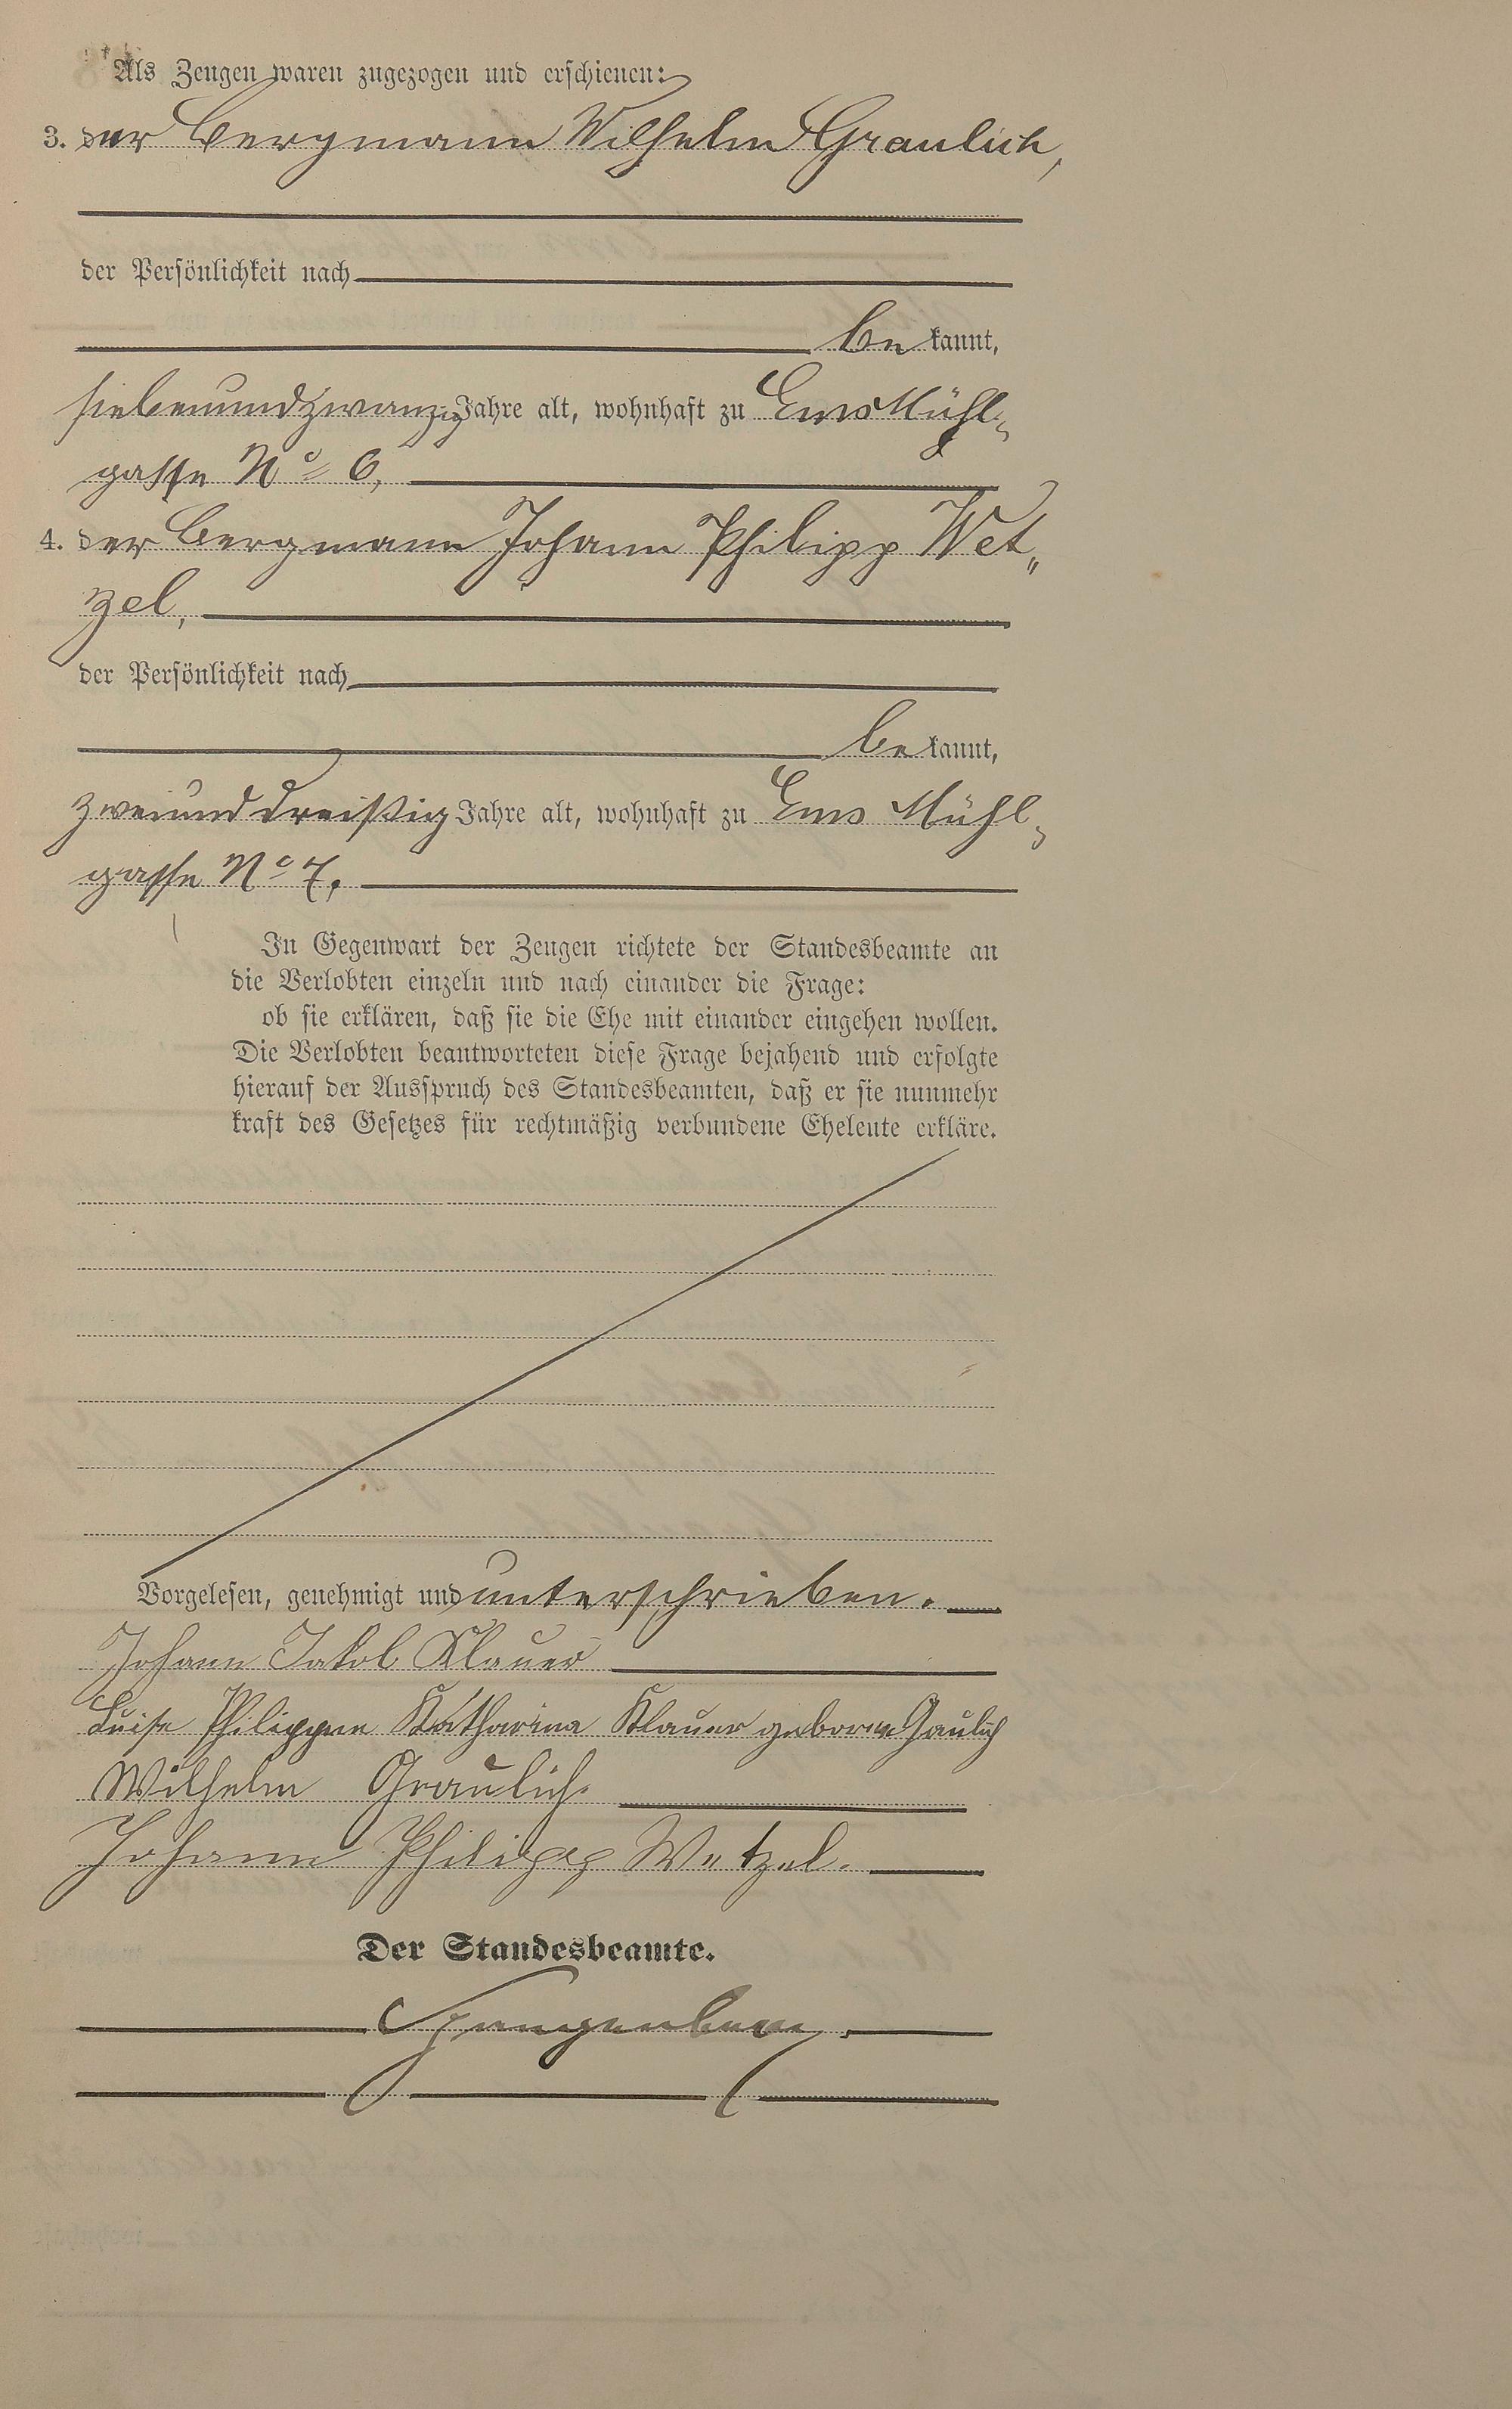 Als Zeugen waren zugezogen und erschienen:
3. der Bergmann Wilhelm Graulich,
der Persönlichkeit nach
be kannt,
siebenundzwanzig Jahre alt, wohnhaft zu Ems Mühl-
gasse No 6,
4. der Bergmann Johann Philipp Wet„
zel,
der Persönlichkeit nach
be kannt,
zweiunddreißig Jahre alt, wohnhaft zu Ems Mühl-
gasse No 7.
In Gegenwart der Zeugen richtete der Standesbeamte an
die Verlobten einzeln und nach einander die Frage:
ob sie erklären, daß sie die Ehe mit einander eingehen wollen.
Die Verlobten beantworteten diese Frage bejahend und erfolgte
hierauf der Ausspruch des Standesbeamten, daß er sie nunmehr
kraft des Gesetzes für rechtmäßig verbundene Eheleute erkläre.
Vorgelesen, genehmigt und unterschrieben.
Johann Jakob Klauer
Luise Philippine Katharina Klauer geborne Gaulich
Wilhelm Graulich.
Johann Philipp Wetzel.
Der Standesbeamte.